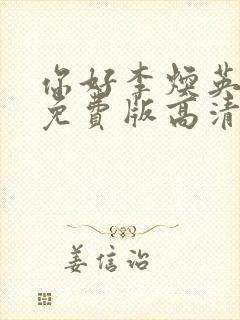 你好李焕英
免费版高清
姜信治